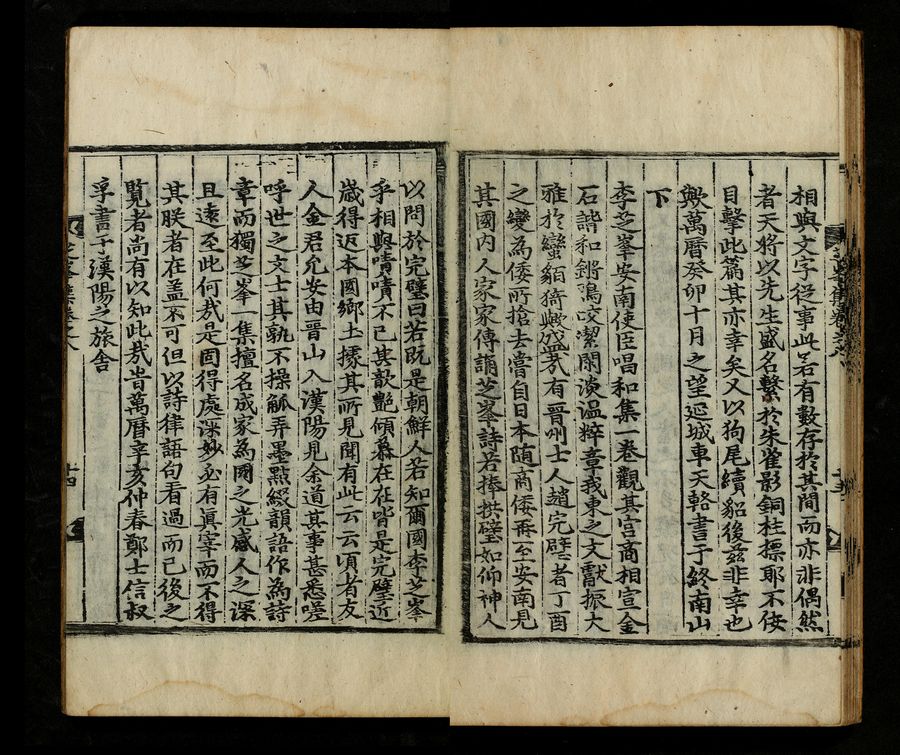 相與文字從事此若有數存於其間而亦非偶然
者天將以先生盛名繫於朱雀影銅柱標耶不佞
目擊此篇其亦幸矣又以狗尾續貂後玆非幸也
歟萬曆癸卯十月之望延城車天輅書于終南山
下
李芝峯安南使臣唱和集一卷觀其宮商相宣金
石諧和鏘鴻皎潔閑淡溫粹章我東之文獻振大
雅於蠻貊猗歟盛哉有晉州士人趙完璧者丁酉
之變為倭所搶去嘗自日本随商倭再至安南見
其國內人家家傳誦芝峯詩若捧拱璧如仰神人
以問於完璧曰若既是朝鮮人若知爾國李芝峯
乎相與嘖嘖不已其歆艶傾慕在在皆是完璧近
歲得返本國鄉土㨿其所見聞有此云云頃者友
人金君允安由晋山入漢陽見余道其事甚悉嗟
呼世之文士其孰不操觚弄墨點綴韻語作為詩
章而獨芝峯一集擅名成家為國之光感人之深
且遠至此何哉是固得處深妙必有眞宰而不得
其朕者在盖不可但以詩律語句看過而已後之
覽者尚有以知此哉旹萬曆辛亥仲春鄭士信叔
孚書于漢陽之旅舍
十四